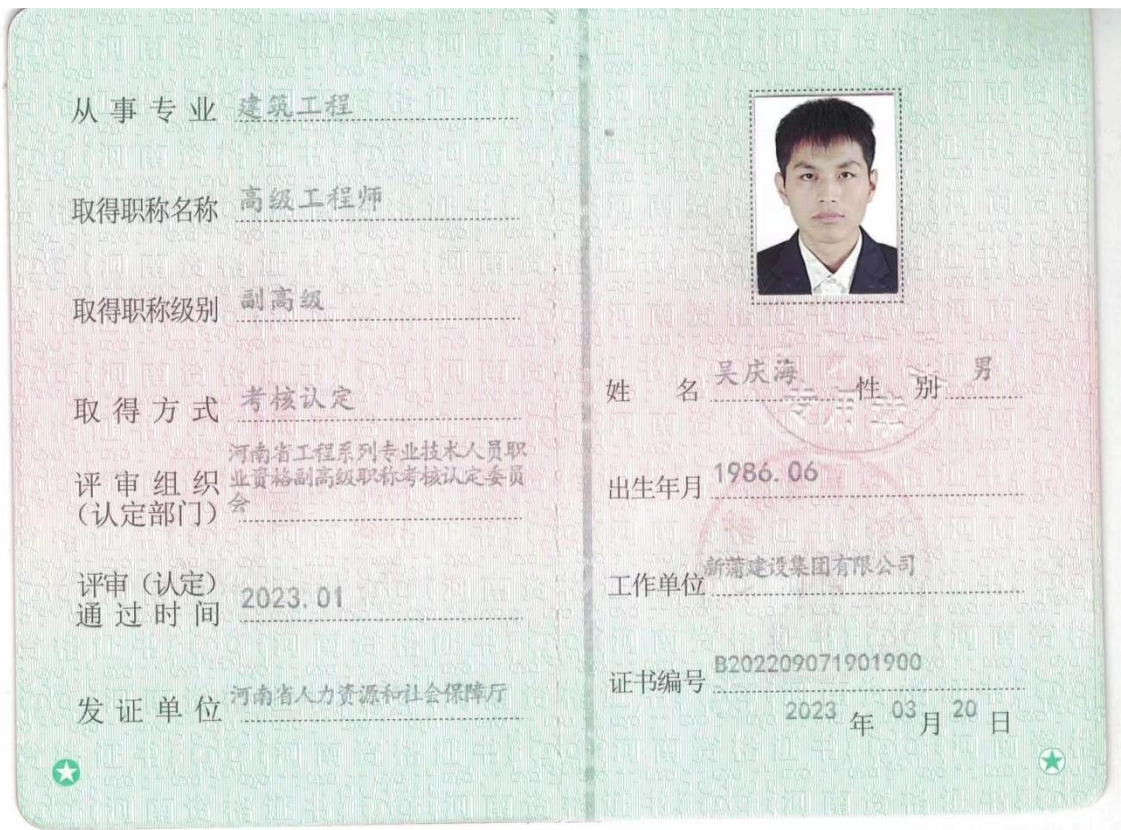 从事专业 建筑工程
取得职称名称 高级工程师
取得职称级别 副高级
取得方式 考核认定
评审组织
（认定部门）
河南省工程系列专业技术人员职
业资格副高级职称考核认定委员
会
评审（认定）
通过时间 2023.01
发证单位 河南省人力资源和社会保障厅
姓名 吴庆海 性别 男
专用章
出生年月 1986.06
工作单位 新蒲建设集团有限公司
证书编号 B202209071901900
2023 年 03 月 20 日